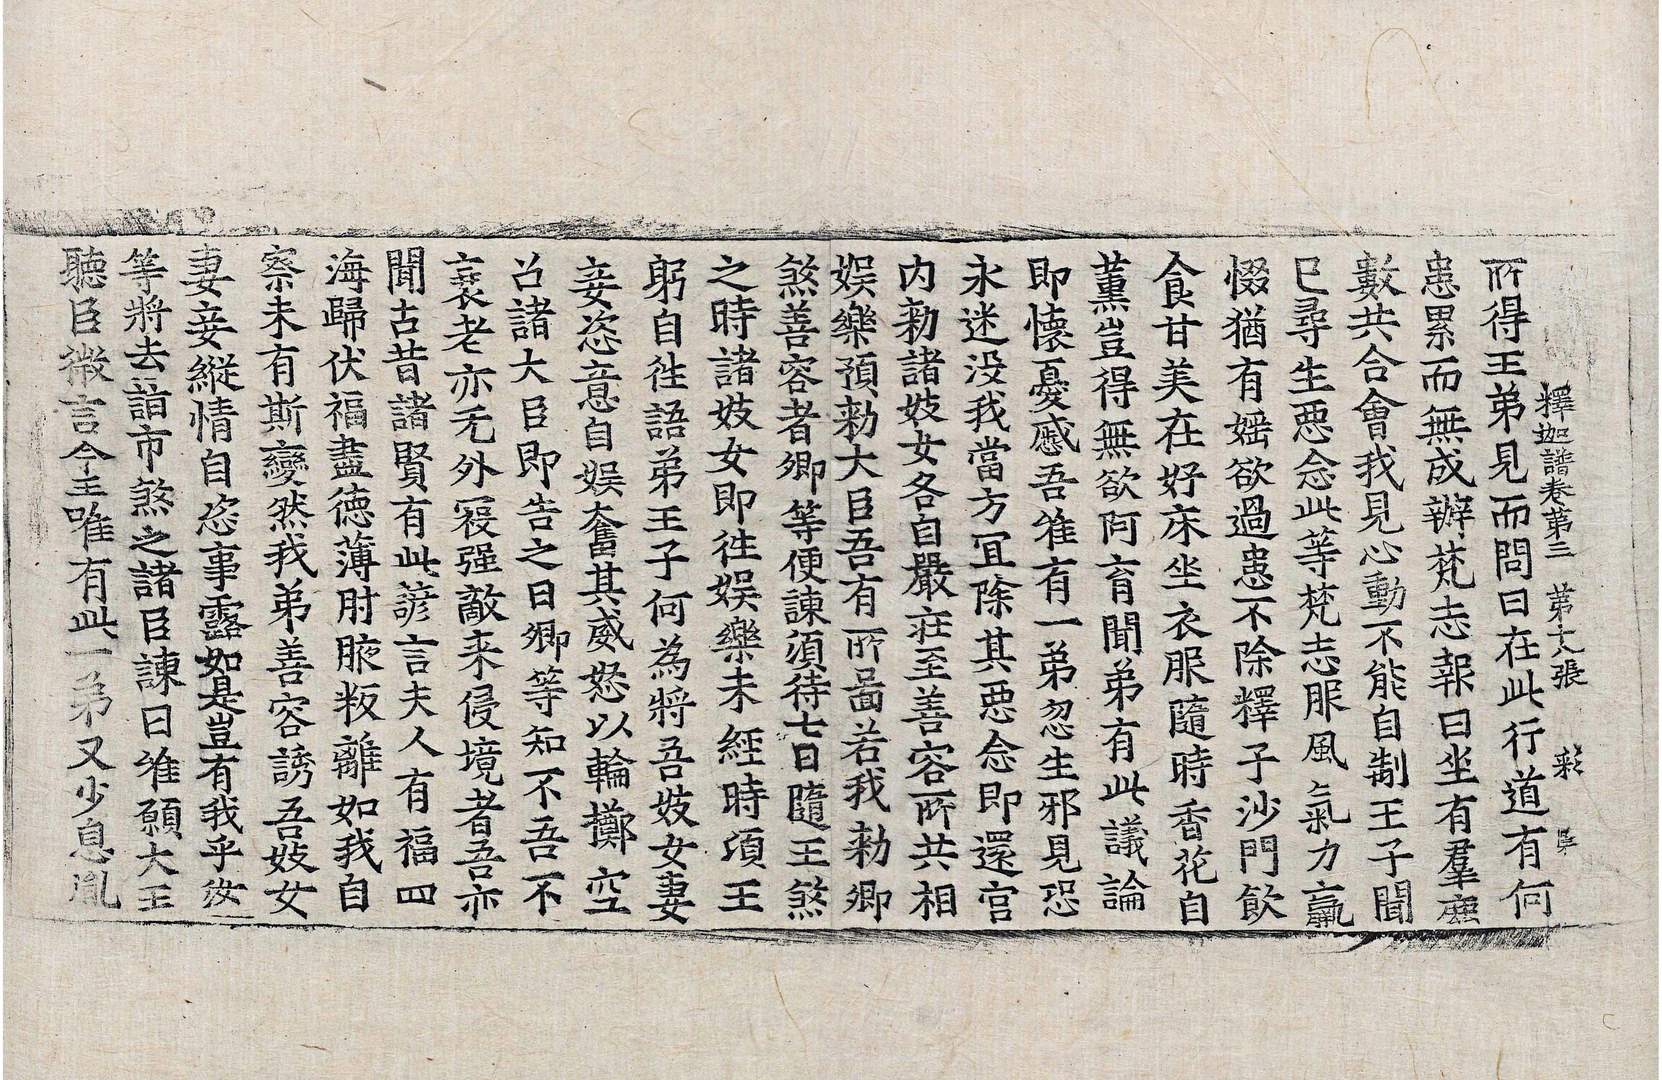 釋迦譜卷第三 第十六張 彩
所得王弟見而問曰在此行道有何
患累而無成辦梵志報曰坐有羣鹿
數共合會我見心動不能自制王子聞
已尋生惡念此等梵志服風氣力羸
惙猶有婬欲過患不除釋子沙門飲
食甘美在好床坐衣服隨時香花自
薰豈得無欲阿育聞弟有此議論
即懷憂慼吾唯有一弟忽生邪見恐
永迷没我當方冝除其惡念即還宮
内勑諸妓女各自嚴莊至善容所共相
娱樂預勑大臣吾有所啚若我勑卿
煞善容者卿等便諫須待七日隨王煞
之時諸妓女即徃娱樂未經時須王
躬自徃語弟王子何為將吾妓女妻
妾恣意自娱奮其威怒以輪擲空
召諸大臣即告之曰卿等知不吾不
衰老亦无外寇强敵来侵境者吾亦
聞古昔諸賢有此諺言夫人有福四
海歸伏福盡德薄肘腋叛離如我自
察未有斯變然我弟善容誘吾妓女
妻妾縱情自恣事露如是豈有我乎汝
等將去詣市煞之諸臣諫曰唯願大王
聽臣微言今王唯有此一弟又少息胤